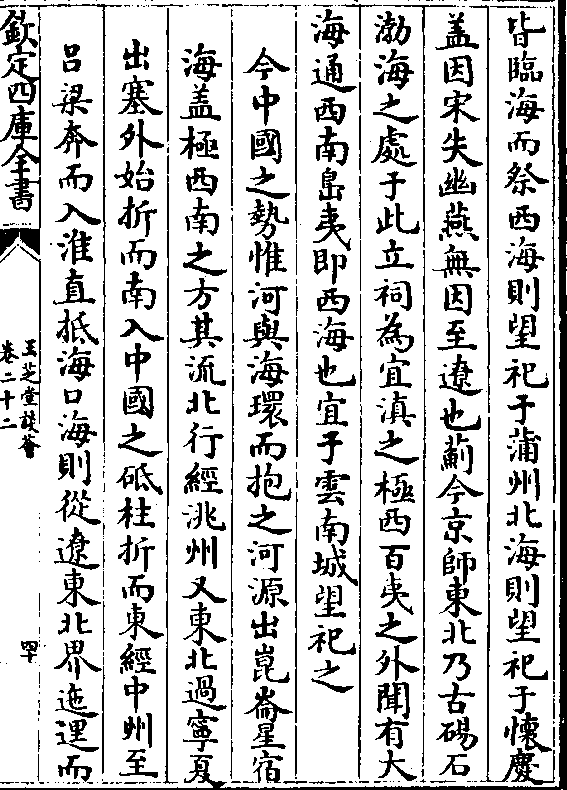 皆臨海而祭西海則望祀于蒲州北海則望祀于懷慶
盖因宋失幽燕無因至遼也薊今京師東北乃古碣石
渤海之處于此立祠為宜滇之極西百夷之外聞有大
海通西南島夷即西海也宜于雲南城望祀之
今中國之勢惟河與海環而抱之河源出崑崙星宿
海盖極西南之方其流北行經洮州又東北過寧夏
出塞外始折而南入中國之砥柱折而東經中州至
呂梁奔而入淮直抵海口海則從遼東北界迤邐而
欽定四庫全書
玉芝堂談薈
卷二十二